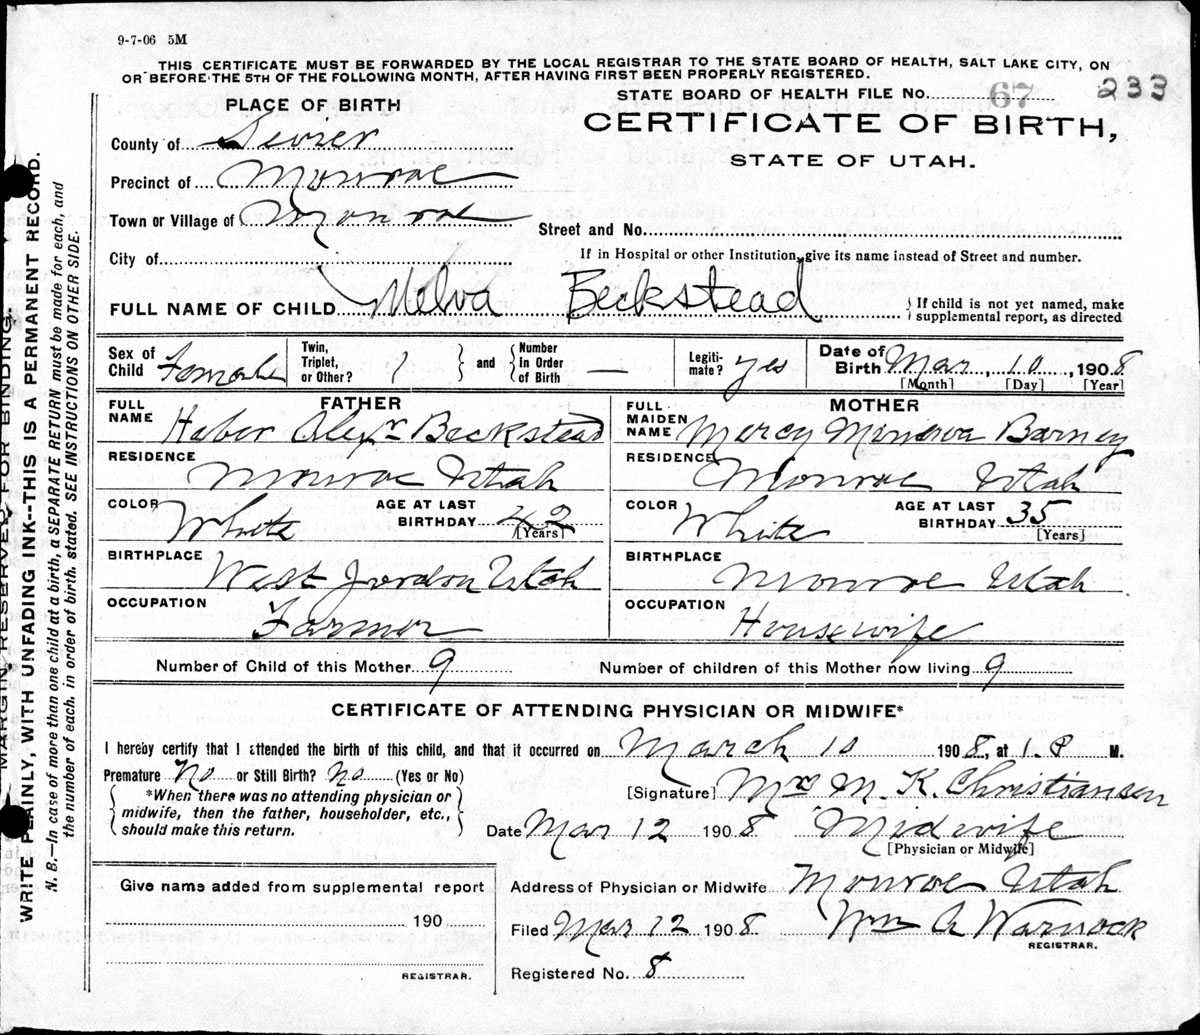 9-7-06 5M
THIS CERTIFICATE MUST BE FORWARDED BY THE LOCAL REGISTRAR TO THE STATE BOARD OF HEALTH, SALT LAKE CITY, ON
OR BEFORE THE 5TH OF THE FOLLOWING MONTH, AFTER HAVING FIRST BEEN PROPERLY REGISTERED.
STATE BOARD OF HEALTH FILE No. 67 233
PLACE OF BIRTH
CERTIFICATE OF BIRTH,
STATE OF UTAH.
County of Sevier
Precinct of Monroe
Town or Village of Monroe
Street and No.
City of
If in Hospital or other Institution, give its name instead of Street and number.
FULL NAME OF CHILD Melva Beckstead { If child is not yet named, make
supplemental report, as directed
Sex of Child Female
Twin, Triplet, or Other? / } and { Number In Order of Birth —
Legiti-mate? yes
Date of Birth Mar 10, 1908
[Month] [Day] [Year]
FATHER
FULL NAME Heber Alexr Beckstead
RESIDENCE Monroe Utah
COLOR White AGE AT LAST BIRTHDAY 42 [Years]
BIRTHPLACE West Jordon Utah
OCCUPATION Farmer
MOTHER
FULL MAIDEN NAME Mercy Minerva Barney
RESIDENCE Monroe Utah
COLOR White AGE AT LAST BIRTHDAY 35 [Years]
BIRTHPLACE Monroe Utah
OCCUPATION Housewife
Number of Child of this Mother 9 Number of children of this Mother now living 9
CERTIFICATE OF ATTENDING PHYSICIAN OR MIDWIFE*
I hereby certify that I attended the birth of this child, and that it occurred on March 10 1908, at 1. M.
Premature No or Still Birth? No (Yes or No)
*When there was no attending physician or
midwife, then the father, householder, etc.,
should make this return.
[Signature] Mrs M. K. Christiansen
Date Mar 12 1908 Midwife
[Physician or Midwife]
Give name added from supplemental report
190
REGISTRAR.
Address of Physician or Midwife Monroe Utah
Filed Mar 12 1908 Wm A Warnock
REGISTRAR.
Registered No. 8
MARGIN RESERVED FOR BINDING.
WRITE PLAINLY, WITH UNFADING INK--THIS IS A PERMANENT RECORD.
N. B.—In case of more than one child at a birth, a SEPARATE RETURN must be made for each, and
the number of each, in order of birth, stated. SEE INSTRUCTIONS ON OTHER SIDE.